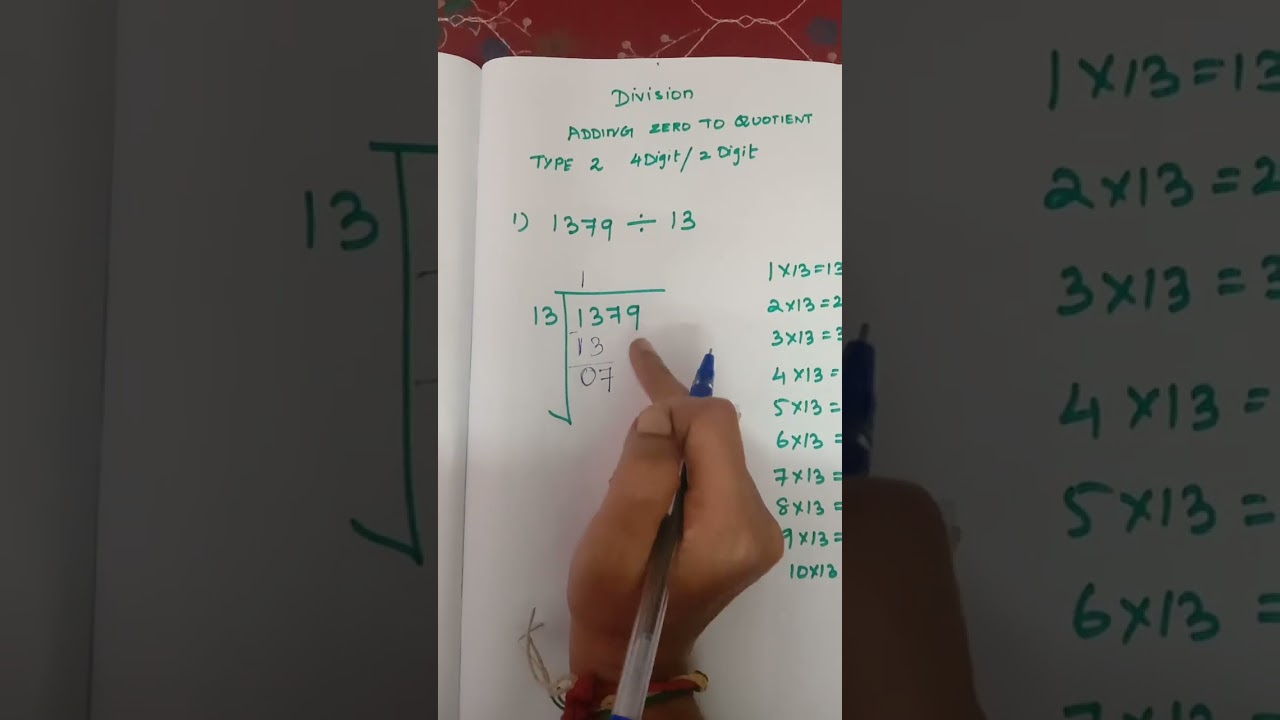 Division
ADDING ZERO TO QUOTIENT
TYPE 2 4 Digit / 2 Digit
1) 1379 ÷ 13
1
13 1379
- 13
07
1 X 13 = 13
2 X 13 = 2
3 X 13 = 3
4 X 13 =
5 X 13 =
6 X 13 =
7 X 13 =
8 X 13 =
9 X 13 =
10 X 13
13
1 X 13 = 13
2 X 13 = 2
3 X 13 = 3
4 X 13 =
5 X 13 =
6 X 13 =